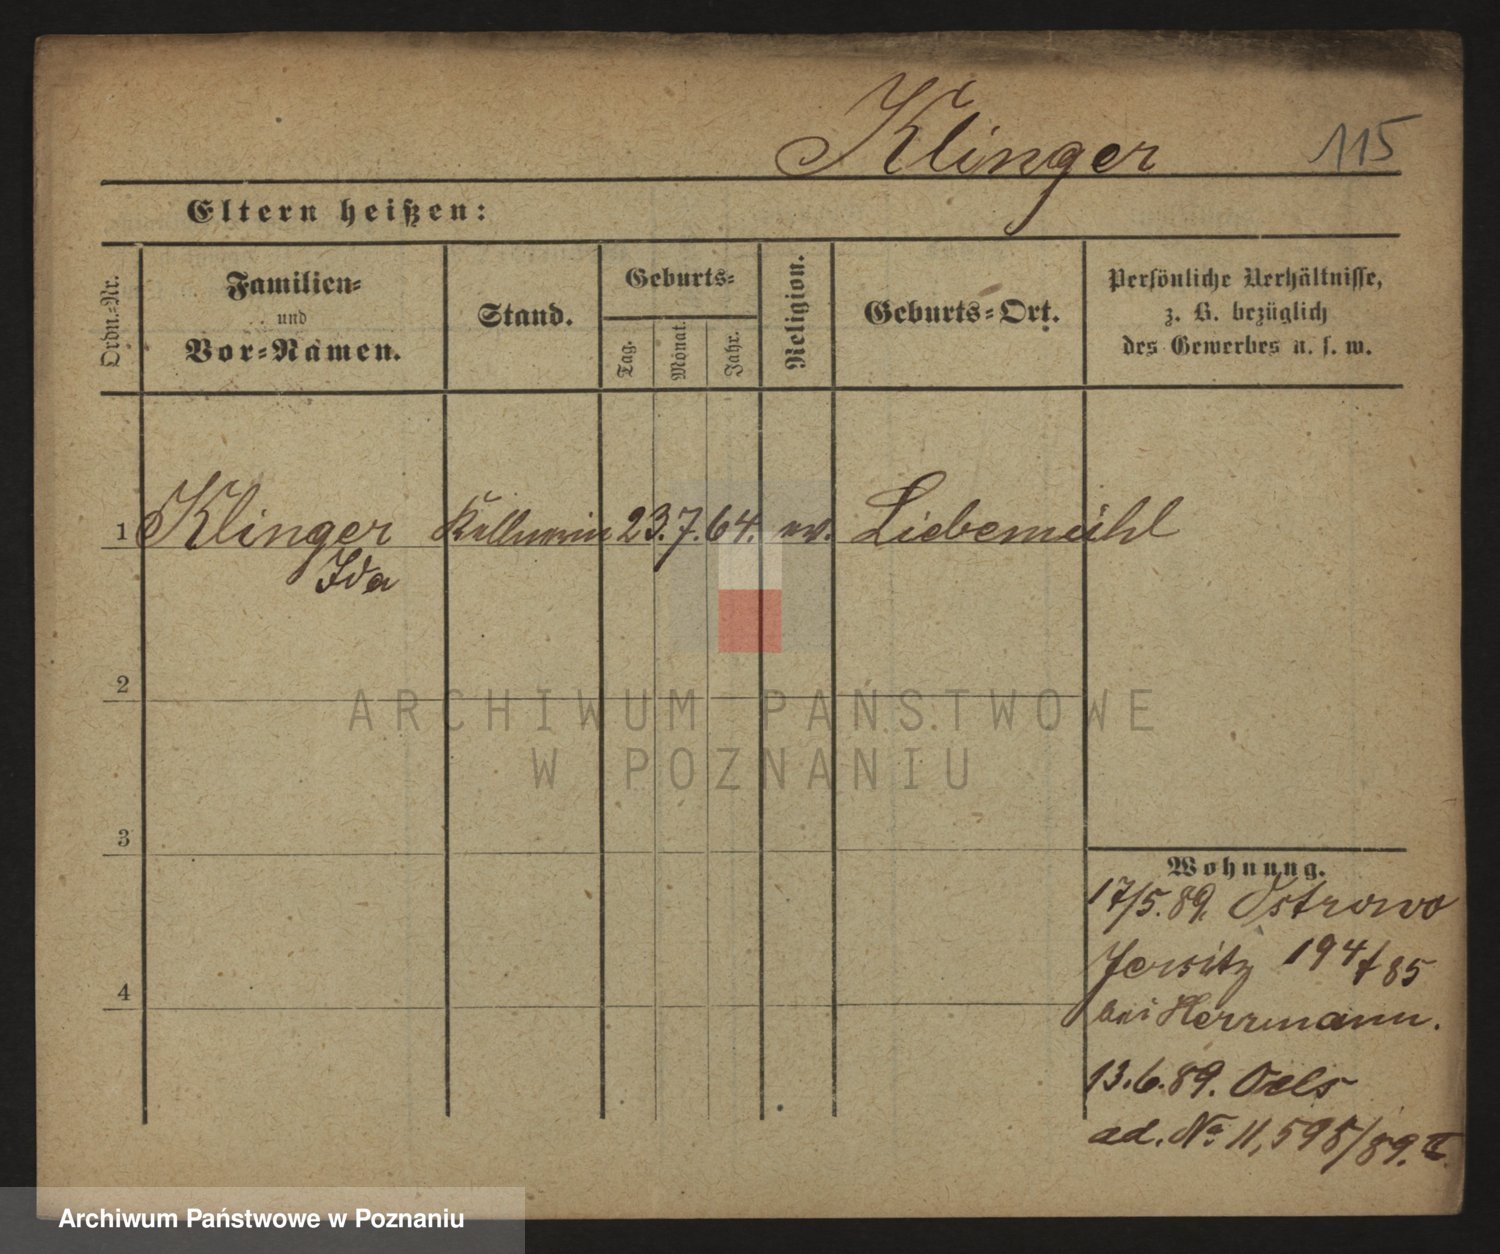 Klinger 115
Eltern heißen:
Ordn.-Nr.
Familien-
und
Vor-Namen.
Stand.
Geburts-
Tag.
Monat.
Jahr.
Religion.
Geburts-Ort.
Persönliche Verhältnisse,
z. B. bezüglich
des Gewerbes u. s. w.
1 Klinger Kellnerin 23. 7. 64. ev. Liebemühl
Ida
2
3
4
Wohnung.
17/5. 89. Ostrowo
Jersitz 194/85
bei Herrmann.
13. 6. 89. Oels
ad. No 11,598/89. II
ARCHIWUM PAŃSTWOWE
W POZNANIU
Archiwum Państwowe w Poznaniu